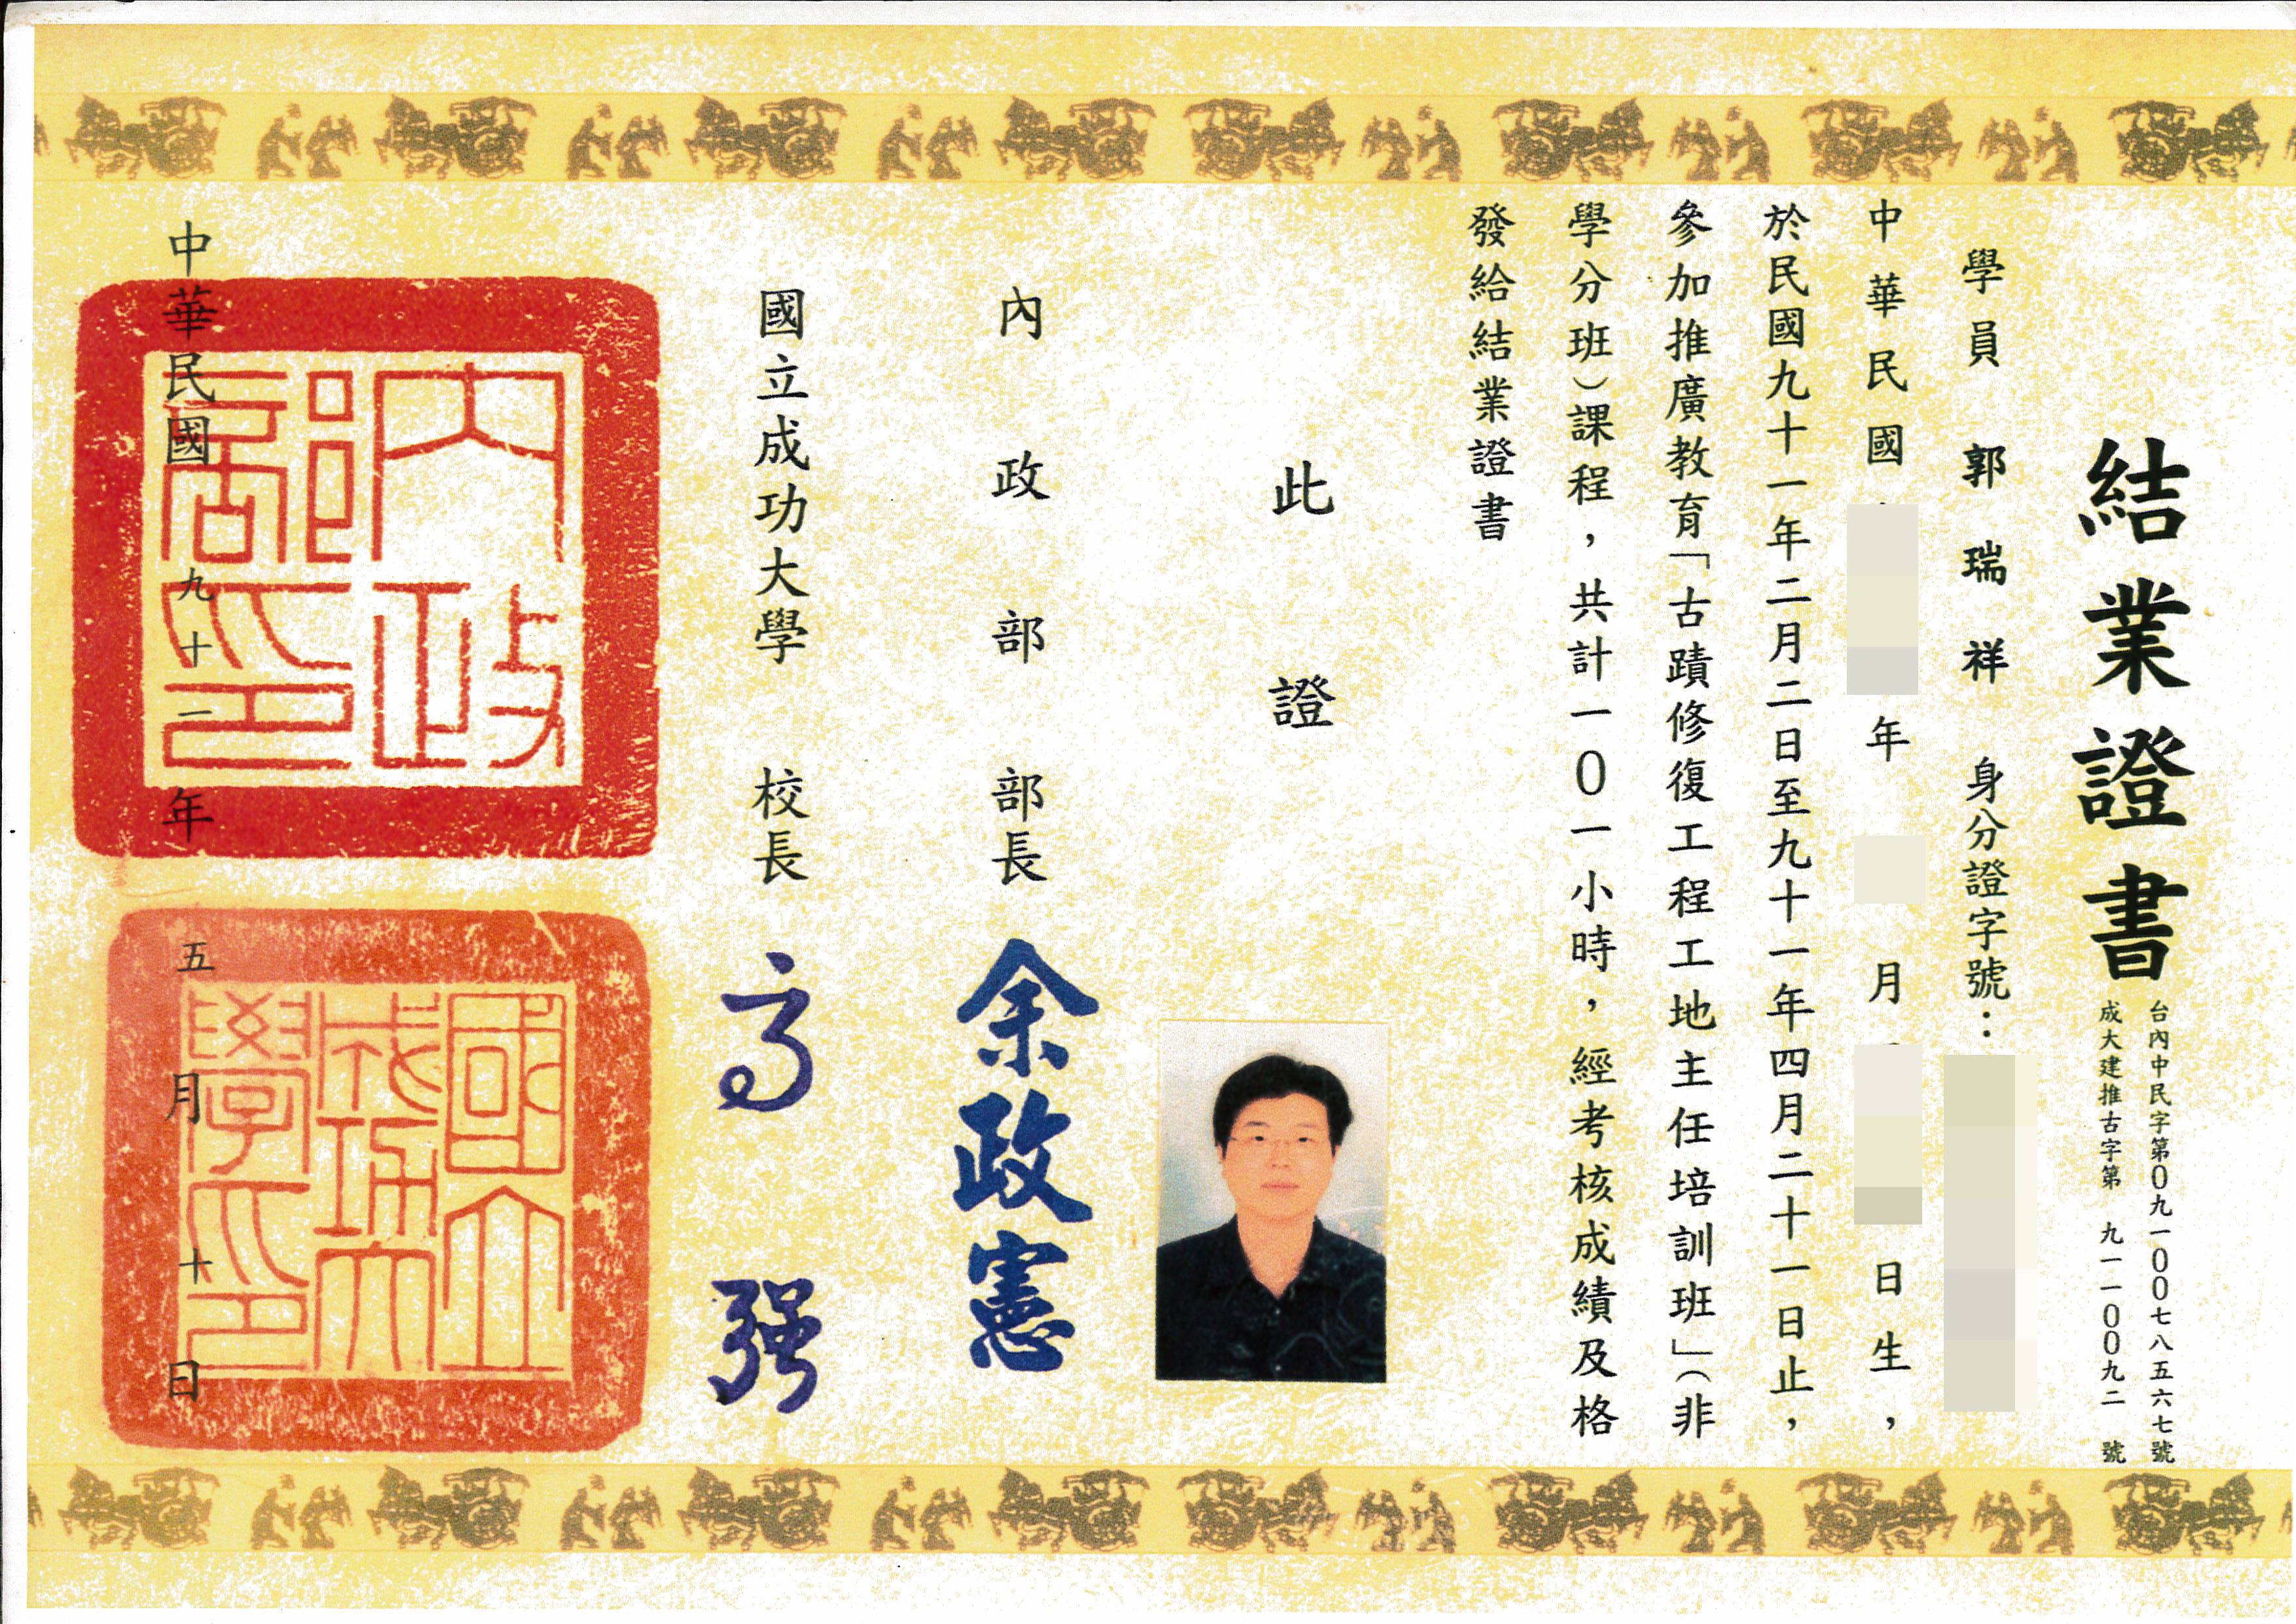 結業證書
台內中民字第0九一00七八五六七號
成大建推古字第 九一一00九二 號
學員 郭瑞祥 身分證字號：
中華民國 年 月 日生，
於民國九十一年二月二日至九十一年四月二十一日止，
參加推廣教育「古蹟修復工程工地主任培訓班」（非
學分班）課程，共計一0一小時，經考核成績及格
發給結業證書
此證
內政部 部長 余政憲
國立成功大學 校長 高強
中華民國 九十一 年 五 月 十 日
內政部印
國立成功大學印